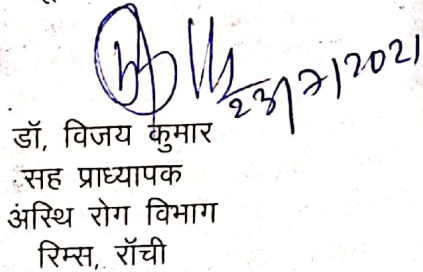 23/7/2021
डॉ, विजय कुमार
सह प्राध्यापक
अस्थि रोग विभाग
रिम्स, रॉची